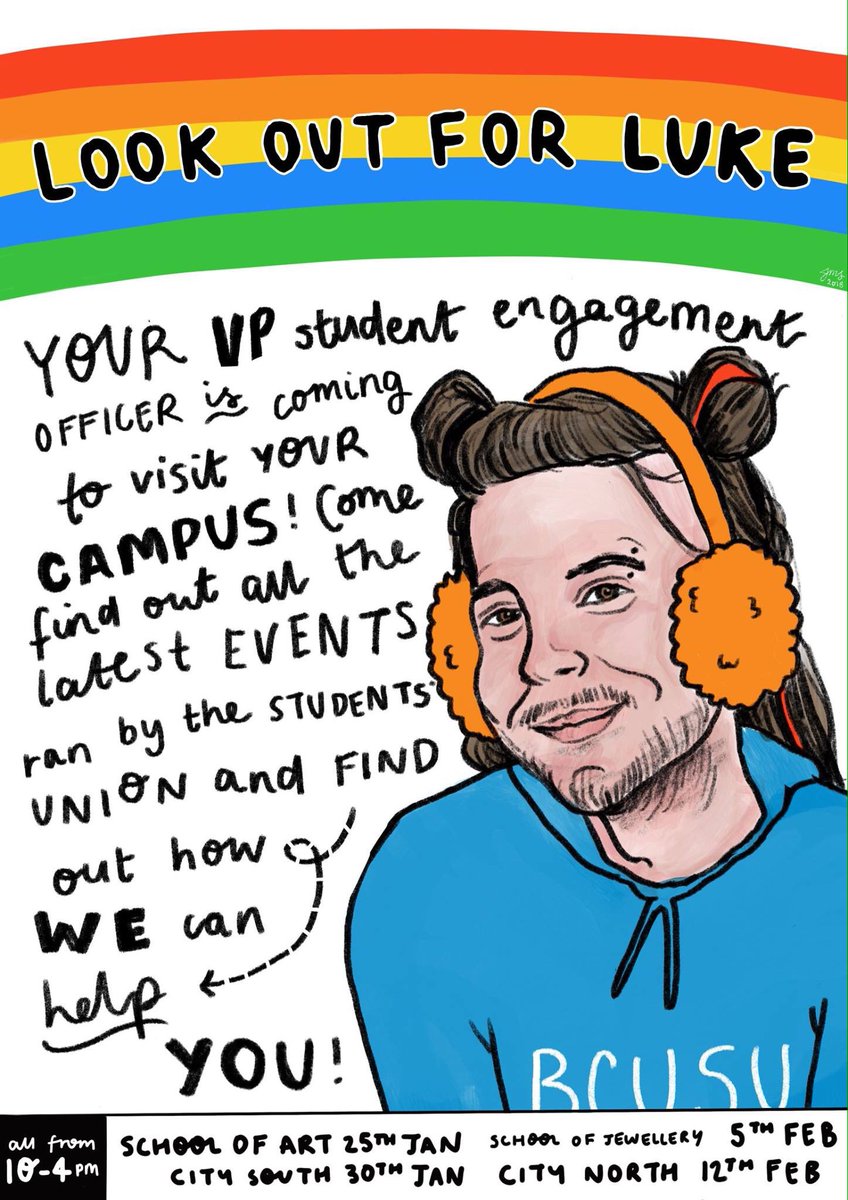 LOOK OUT FOR LUKE
gms
2018
YOUR VP student engagement
OFFICER is coming
to visit YOUR
CAMPUS! Come
find out all the
latest EVENTS
ran by the STUDENTS'
UNION and FIND
out how
WE can
help
YOU!
BCUSU
all from
10-4PM
SCHOOL OF ART 25TH JAN
CITY SOUTH 30TH JAN
SCHOOL OF JEWELLERY 5TH FEB
CITY NORTH 12TH FEB